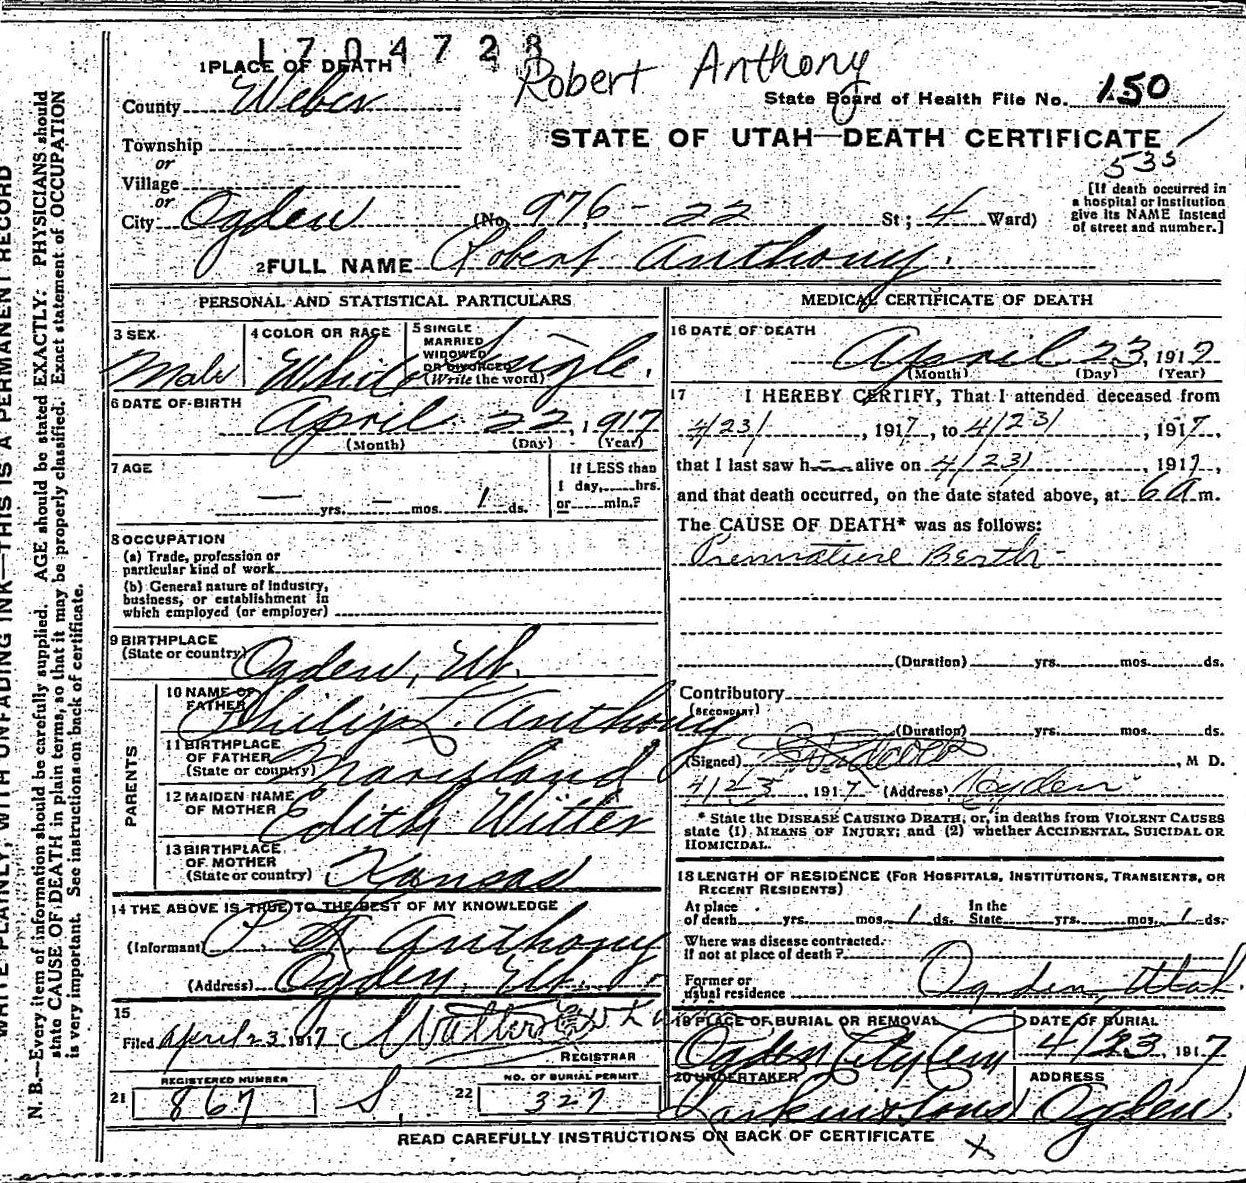 1704728
Robert Anthony
1 PLACE OF DEATH
County Weber
State Board of Health File No. 150
STATE OF UTAH—DEATH CERTIFICATE
535
Township
or
Village
or
City Ogden (No. 976 - 22 St; 4 Ward)
[If death occurred in a hospital or institution give its NAME instead of street and number.]
2 FULL NAME Robert Anthony.
PERSONAL AND STATISTICAL PARTICULARS
3 SEX Male
4 COLOR OR RACE White
5 SINGLE MARRIED WIDOWED OR DIVORCED (Write the word) Single.
6 DATE OF BIRTH
April 22, 1917
(Month) (Day) (Year)
7 AGE
— yrs. — mos. 1 ds.
If LESS than 1 day, hrs. or min.?
8 OCCUPATION
(a) Trade, profession or particular kind of work
(b) General nature of industry, business, or establishment in which employed (or employer)
9 BIRTHPLACE
(State or country) Ogden, Ut.
PARENTS
10 NAME OF FATHER Philip L. Anthony
11 BIRTHPLACE OF FATHER (State or country) Maryland
12 MAIDEN NAME OF MOTHER Edith Witter
13 BIRTHPLACE OF MOTHER (State or country) Kansas
14 THE ABOVE IS TRUE TO THE BEST OF MY KNOWLEDGE
(Informant) Anthony
(Address) Ogden, Ut.
15
Filed April 23 1917
REGISTRAR
REGISTERED NUMBER
21 867
NO. OF BURIAL PERMIT
22 327
MEDICAL CERTIFICATE OF DEATH
16 DATE OF DEATH
April 23, 1917
(Month) (Day) (Year)
17 I HEREBY CERTIFY, That I attended deceased from
4/23/, 1917, to 4/23/, 1917,
that I last saw h— alive on 4/23/, 1917,
and that death occurred, on the date stated above, at 6 a m.
The CAUSE OF DEATH* was as follows:
Premature Berth -
(Duration) yrs. mos. ds.
Contributory
(SECONDARY)
(Duration) yrs. mos. ds.
(Signed) , M D.
4/23, 1917 (Address) Ogden
* State the DISEASE CAUSING DEATH, or, in deaths from VIOLENT CAUSES state (1) MEANS OF INJURY; and (2) whether ACCIDENTAL, SUICIDAL OR HOMICIDAL.
18 LENGTH OF RESIDENCE (FOR HOSPITALS, INSTITUTIONS, TRANSIENTS, OR RECENT RESIDENTS)
At place of death yrs. mos. 1 ds. In the State yrs. mos. 1 ds.
Where was disease contracted. If not at place of death?
Former or usual residence Ogden, Utah.
19 PLACE OF BURIAL OR REMOVAL
Ogden City Cem
DATE OF BURIAL
4/23, 1917
20 UNDERTAKER
Larkin & Sons
ADDRESS
Ogden.
READ CAREFULLY INSTRUCTIONS ON BACK OF CERTIFICATE
WRITE PLAINLY, WITH UNFADING INK—THIS IS A PERMANENT RECORD
N. B.—Every item of information should be carefully supplied. AGE should be stated EXACTLY. PHYSICIANS should
state CAUSE OF DEATH in plain terms, so that it may be properly classified. Exact statement of OCCUPATION
is very important. See instructions on back of certificate.